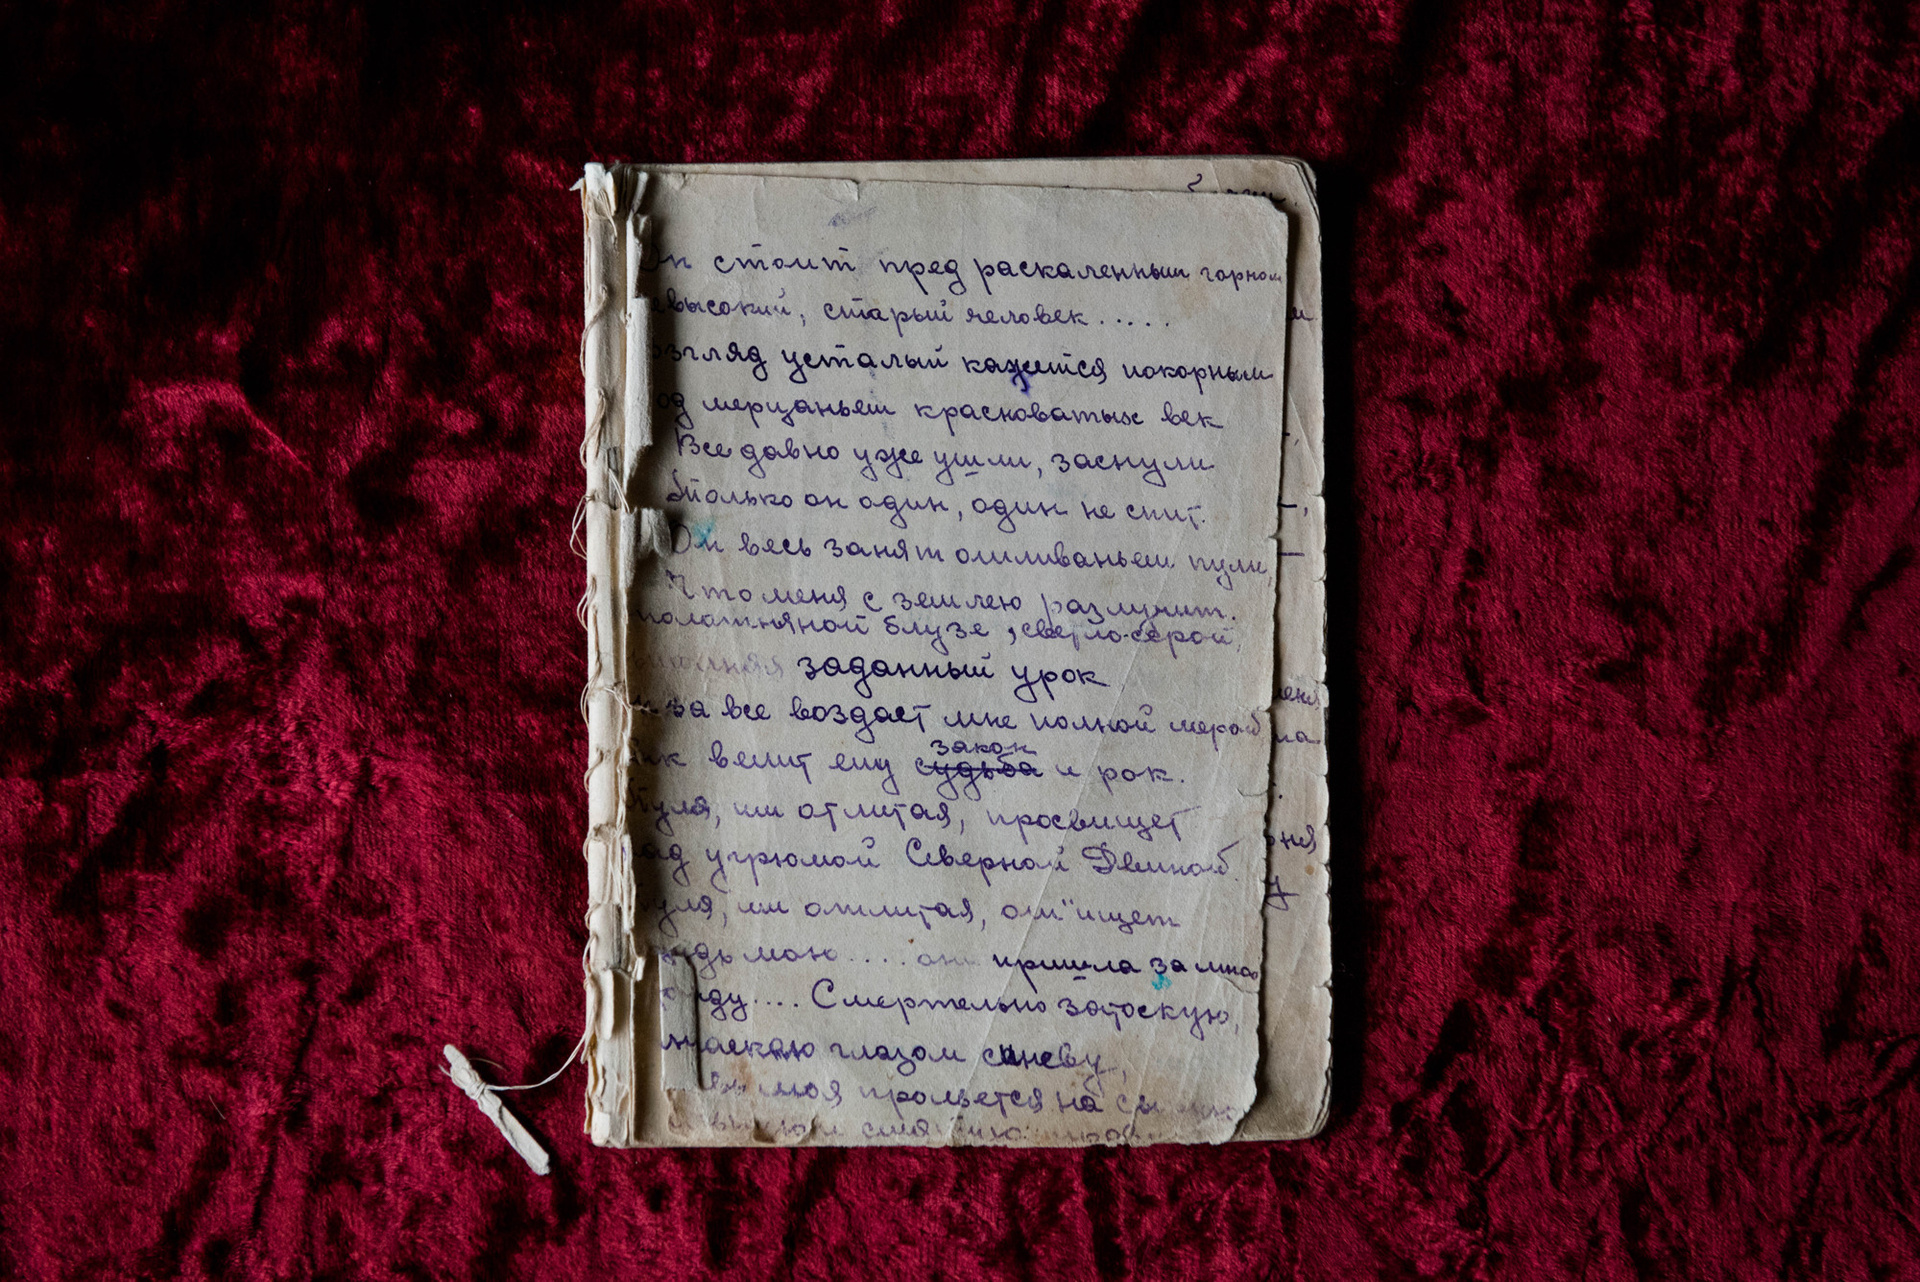 Он стоит пред раскаленным горном
евысокий, старый человек.....
взгляд усталый кажется покорным
од мерцаньем красноватых век
Все давно уже ушли, заснули
только он один, один не спит.
Он весь занят отливаньем пули,
Что меня с землею разлучит.
полотняной блузе, светло-серой,
заданный урок
и за все воздаст мне полной мерой
велит ему закон
судьба и рок.
Пуля, им отлитая, просвищет
ад угрюмой Северной Двиной.
уля, им отлитая, отыщет
рудь мою.... она пришла за мной
ду.... Смертельно затоскую,
глазом синеву,
моя прольется на
меня
ла
рня
у